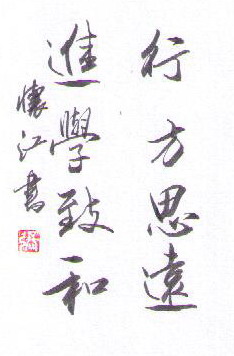 行方思遠
進學致和
懷江書